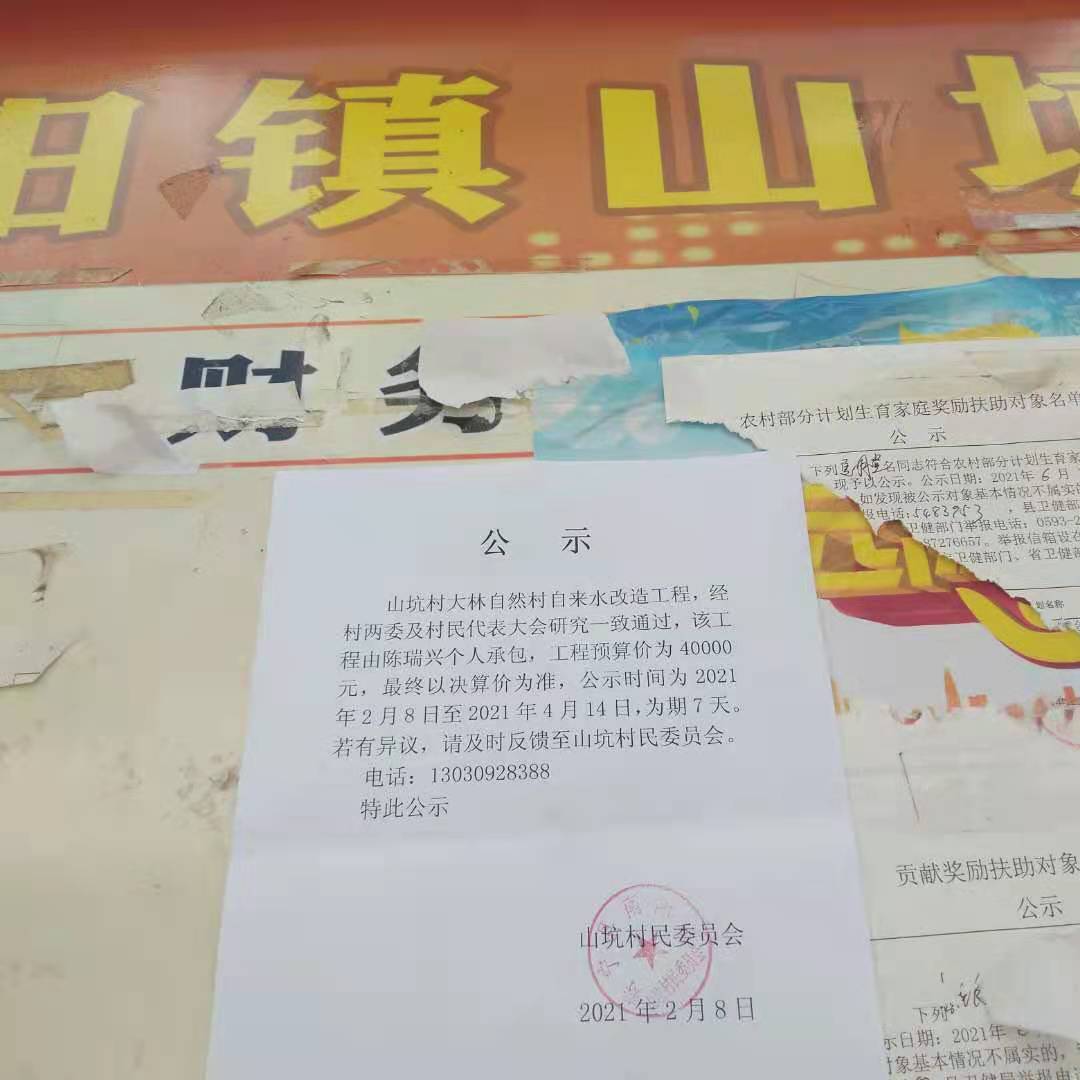 阳镇山坑
财务
公 示
山坑村大林自然村自来水改造工程，经
村两委及村民代表大会研究一致通过，该工
程由陈瑞兴个人承包，工程预算价为 40000
元，最终以决算价为准，公示时间为 2021
年 2 月 8 日至 2021 年 4 月 14 日，为期 7 天。
若有异议，请及时反馈至山坑村民委员会。
电话：13030928388
特此公示
山坑村民委员会
2021 年 2 月 8 日
农村部分计划生育家庭奖励扶助对象名单
公 示
下列 名同志符合农村部分计划生育家
现予以公示。公示日期：2021年 6 月
如发现被公示对象基本情况不属实的
报电话:5483953 ，县卫健部
卫健部门举报电话：0593-2
87276657。举报信箱设在
卫健部门、省卫健
名称
贡献奖励扶助对象
公示
下列
示日期：2021年
对象基本情况不属实的，
县卫健局举报电话